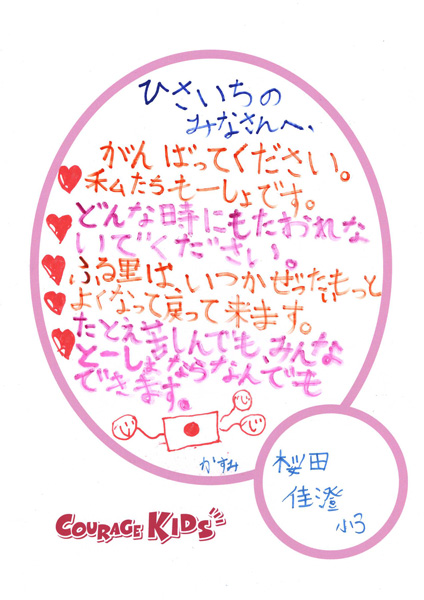 ひさいちの
みなさんへ、
がんばってください。
私たちも一しょです。
どんな時にもたおれな
いでください。
ふる里は、いつかぜったいもっと
よくなって戻って来ます。
たとえ苦しんでも、みんな
と一しょならなんでも
できます。
かすみ
桜田
佳澄
小3
COURAGE KIDS